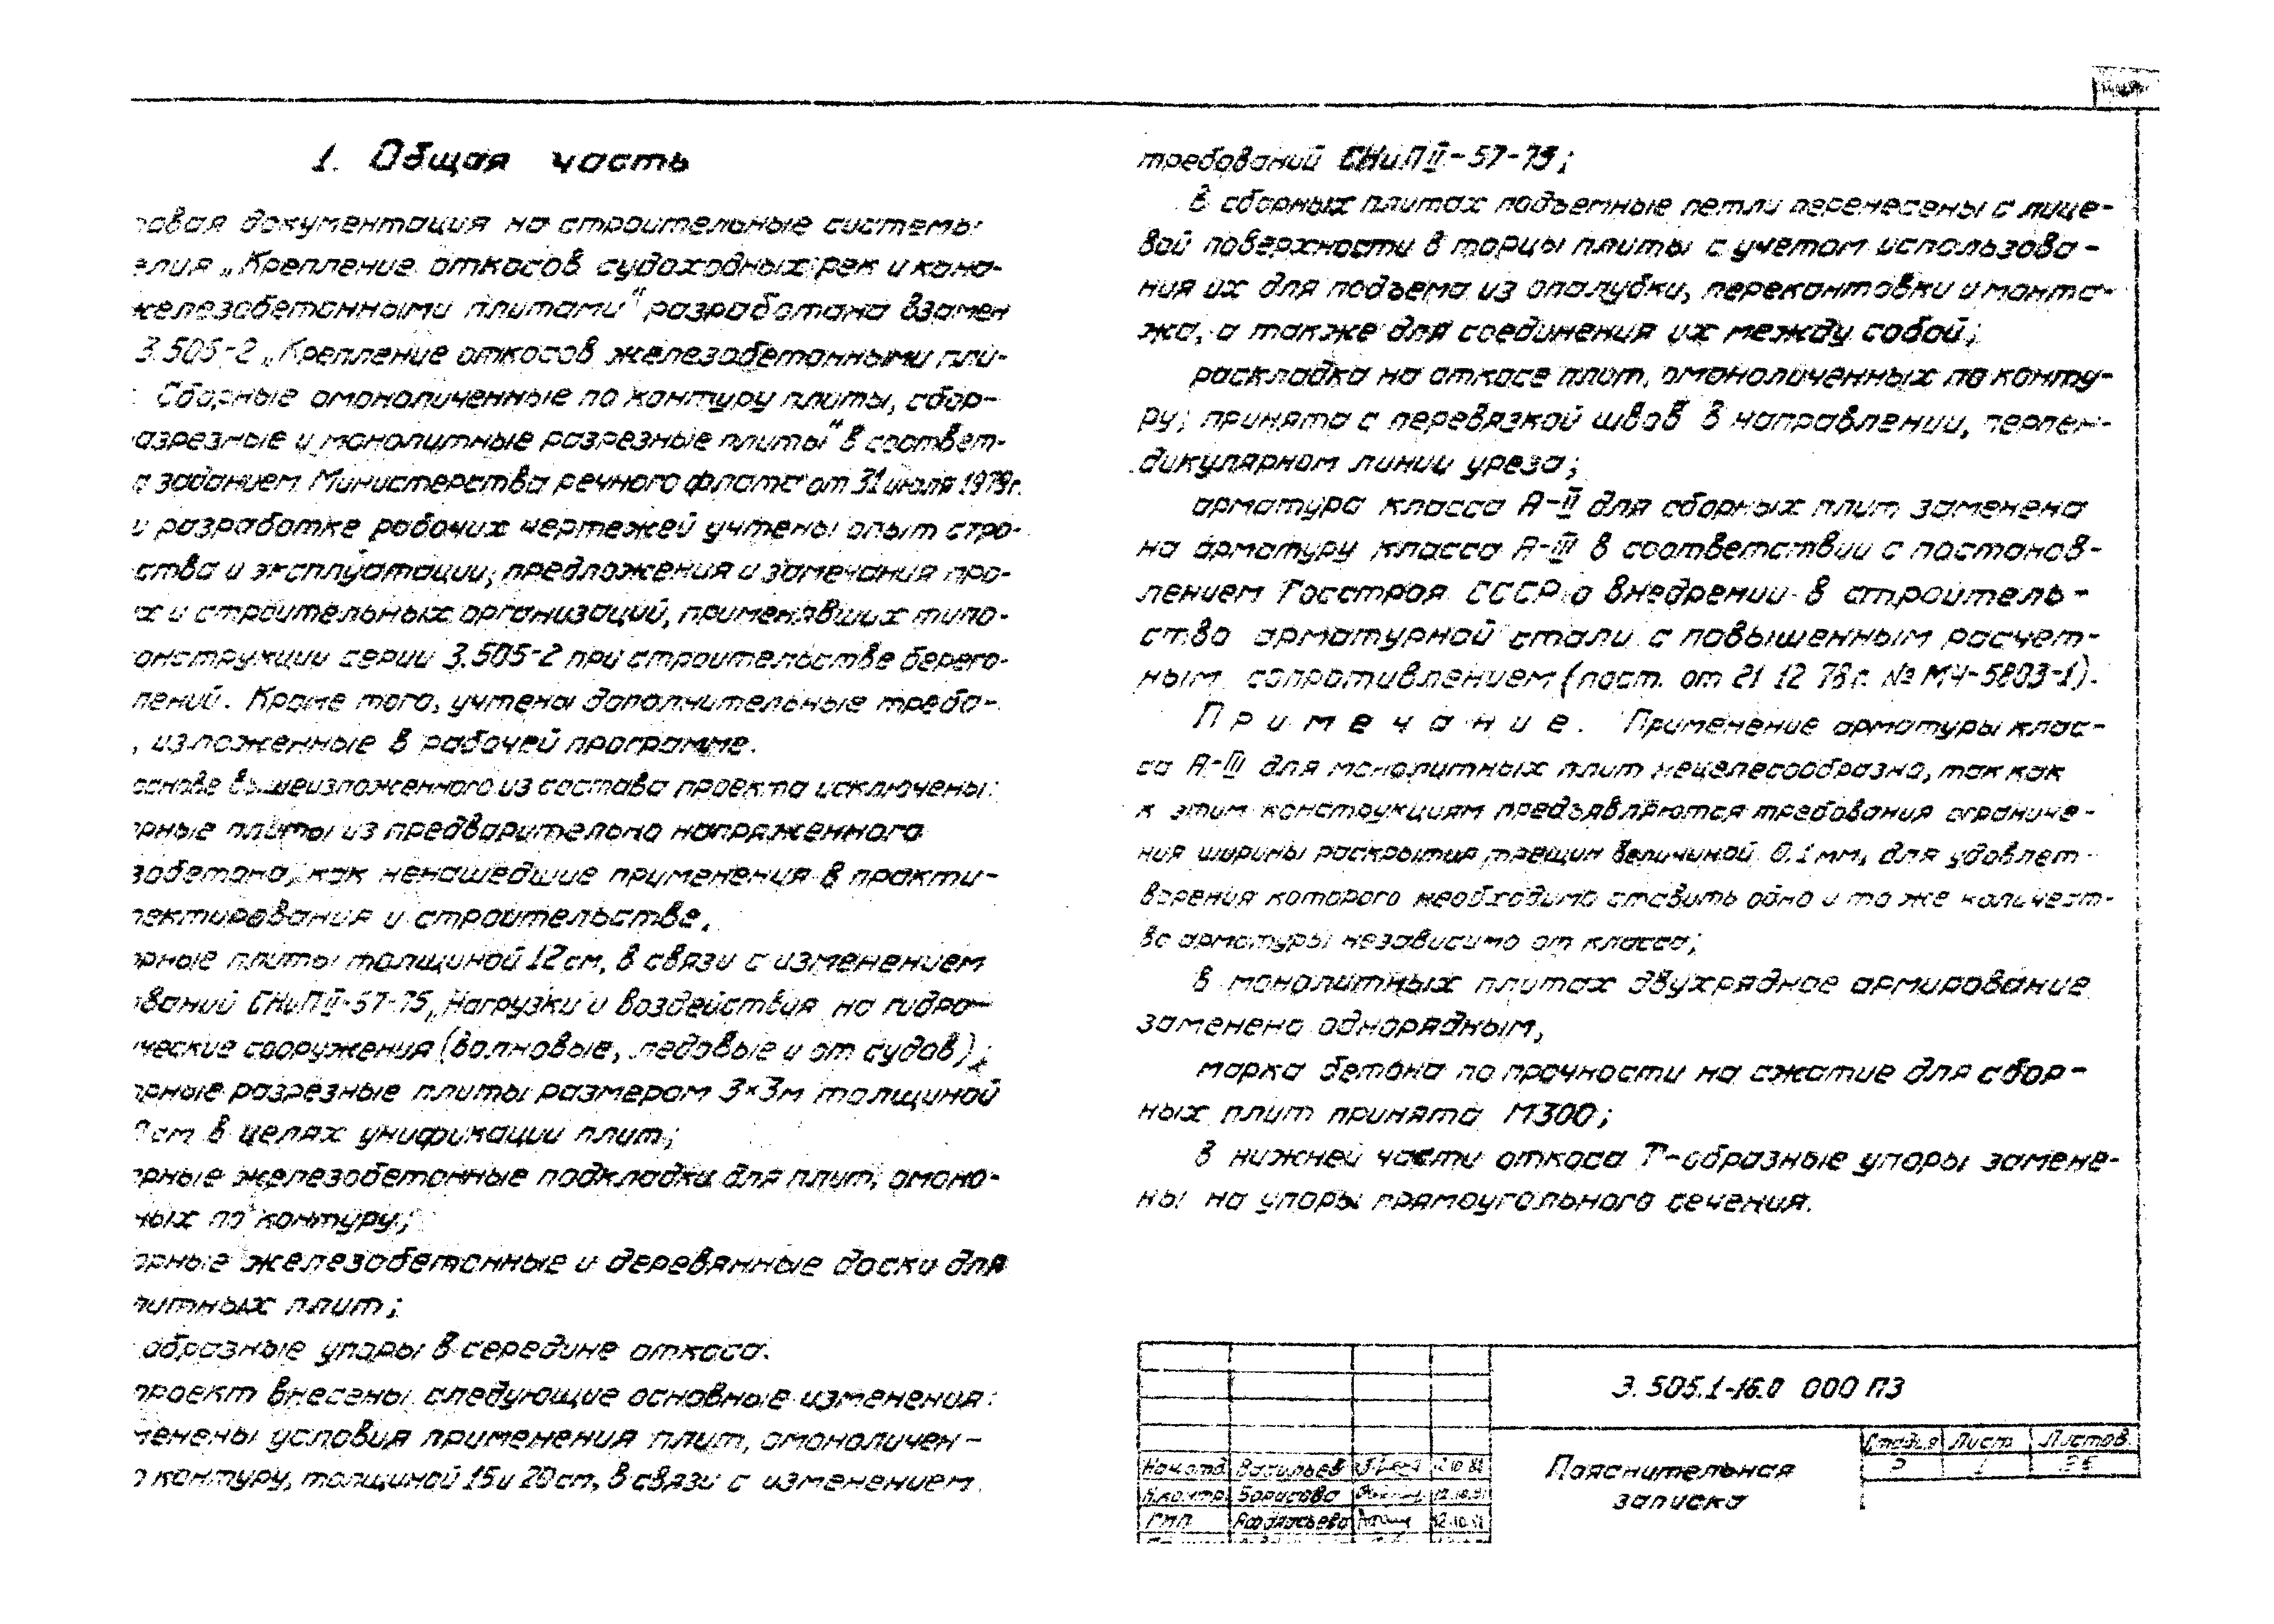 1. Общая часть
овая документация на строительные системы
елия „Крепление откосов судоходных рек и кана-
железобетонными плитами“ разработана взамен
3.505-2 „Крепление откосов железобетонными пли-
Сборные омоноличенные по контуру плиты, сбор-
азрезные и монолитные разрезные плиты“ в соответ-
заданием Министерства речного флота от 31 июля 1979г.
и разработке рабочих чертежей учтены опыт стро-
ства и эксплуатации, предложения и замечания про-
х и строительных организаций, применявших типо-
онструкции серии 3.505-2 при строительстве берего-
лений. Кроме того, учтены дополнительные требо-
, изложенные в рабочей программе.
основе вышеизложенного из состава проекта исключены:
рные плиты из предварительно напряженного
зобетона, как ненашедшие применения в практи-
ектирования и строительстве,
рные плиты толщиной 12 см, в связи с изменением
ваний СНиП II-57-75 „Нагрузки и воздействия на гидро-
ические сооружения (волновые, ледовые и от судов);
рные разрезные плиты размером 3×3м толщиной
см в целях унификации плит;
рные железобетонные подкладки для плит, омоно-
ных по контуру;
рные железобетонные и деревянные доски для
литных плит;
образные упоры в середине откоса.
проект внесены следующие основные изменения:
менены условия применения плит, омоноличен-
о контуру, толщиной 15 и 20 см, в связи с изменением
требований СНиП II-57-75;
в сборных плитах подъемные петли перенесены с лице-
вой поверхности в торцы плиты с учетом использова-
ния их для подъема из опалубки, перекантовки и монта-
жа, а также для соединения их между собой;
раскладка на откосе плит, омоноличенных по конту-
ру, принята с перевязкой швов в направлении, перпен-
дикулярном линии уреза;
арматура класса А-II для сборных плит заменена
на арматуру класса А-III в соответствии с постанов-
лением Госстроя СССР о внедрении в строитель-
ство арматурной стали с повышенным расчет-
ным сопротивлением (пост. от 21 12 78 г. № МЧ-5803-1).
Примечание. Применение арматуры клас-
са А-III для монолитных плит нецелесообразно, так как
к этим конструкциям предъявляются требования ограниче-
ния ширины раскрытия трещин величиной 0.1 мм, для удовлет-
ворения которого необходимо ставить одно и то же количест-
во арматуры независимо от класса;
в монолитных плитах двухрядное армирование
заменено однорядным,
марка бетона по прочности на сжатие для сбор-
ных плит принята М300;
в нижней части откоса Т-образные упоры замене-
ны на упоры прямоугольного сечения.
3.505.1-16.0 000 ПЗ
Пояснительная
записка
Стадия Лист Листов
Р 1
Нач.отд. Васильев
Н.контр. Борисова
ГИП Афанасьева